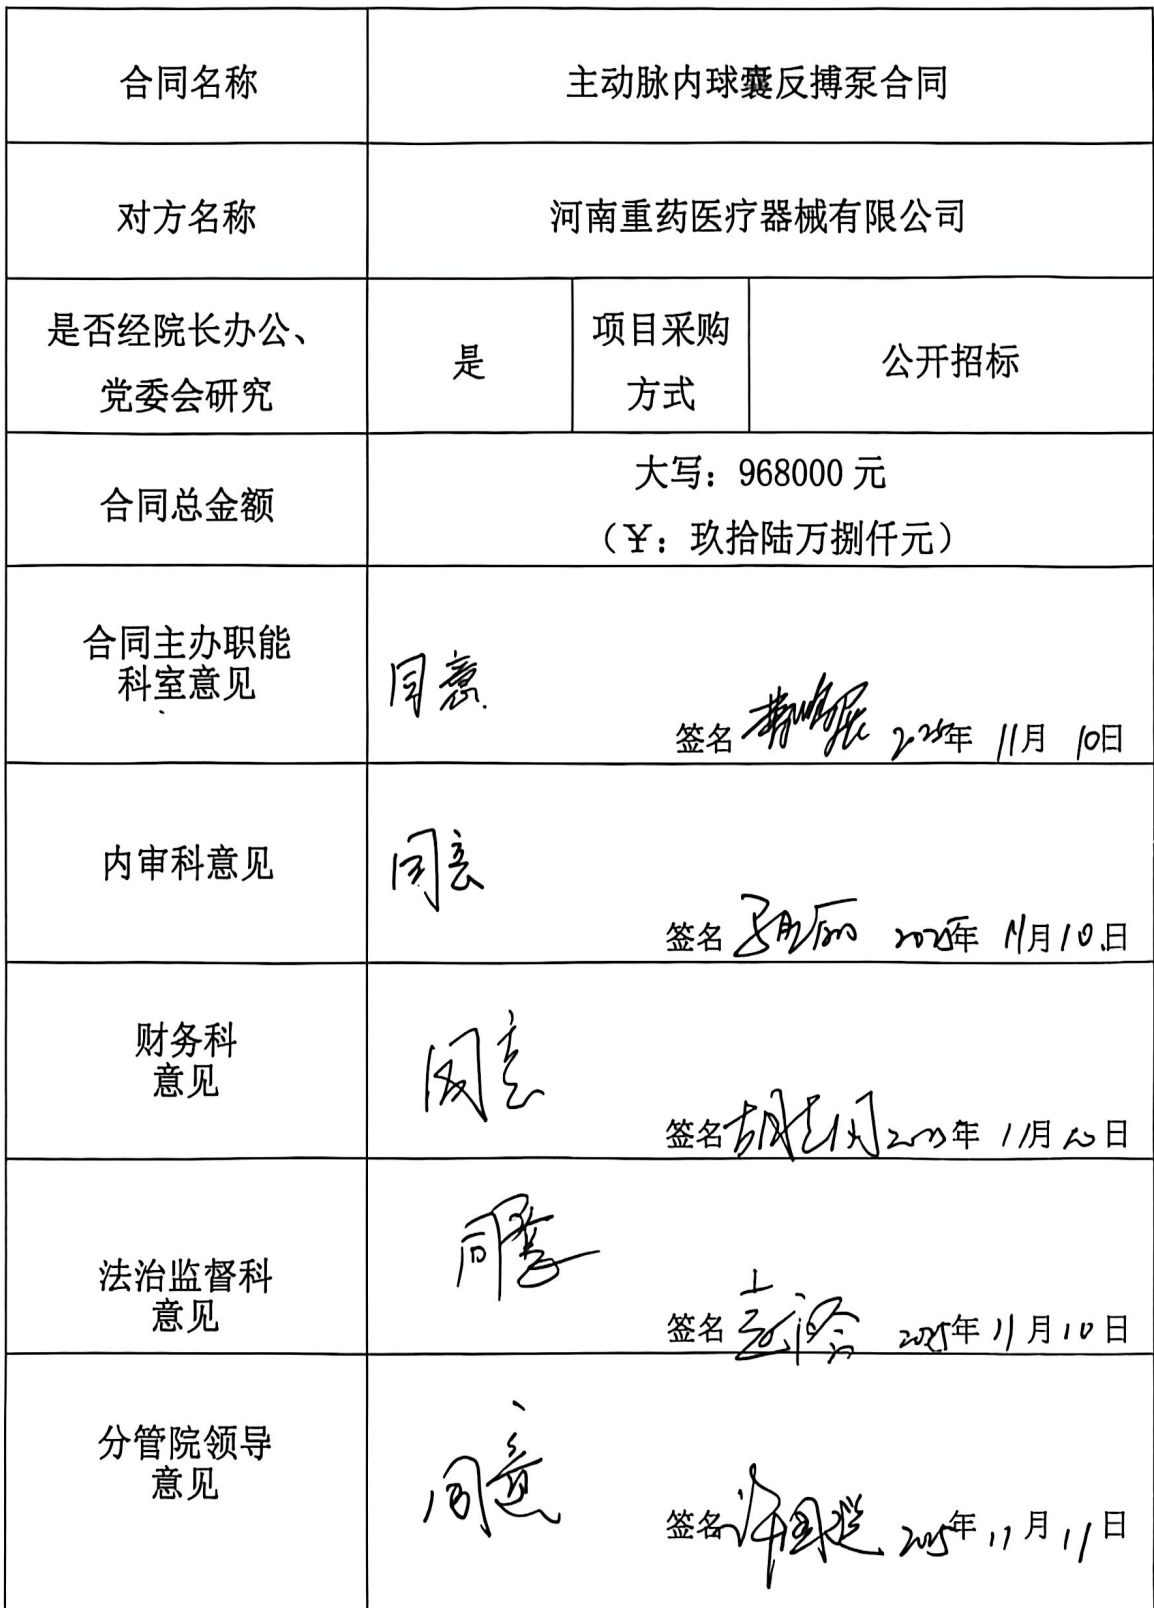 合同名称
主动脉内球囊反搏泵合同
对方名称
河南重药医疗器械有限公司
是否经院长办公、
党委会研究
是
项目采购
方式
公开招标
合同总金额
大写：968000 元
（￥：玖拾陆万捌仟元）
合同主办职能
科室意见
同意
签名 2025年 11月 10日
内审科意见
同意
签名 2025年 11月10日
财务科
意见
同意
签名 年 11月10日
法治监督科
意见
同意
签名 2025年11月10日
分管院领导
意见
同意
签名 2025年11月11日